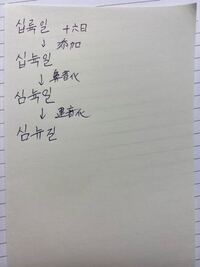 십륙일 十六日
↓ 添加
십눅일
↓ 鼻音化
심눅일
↓ 連音化
심뉴길